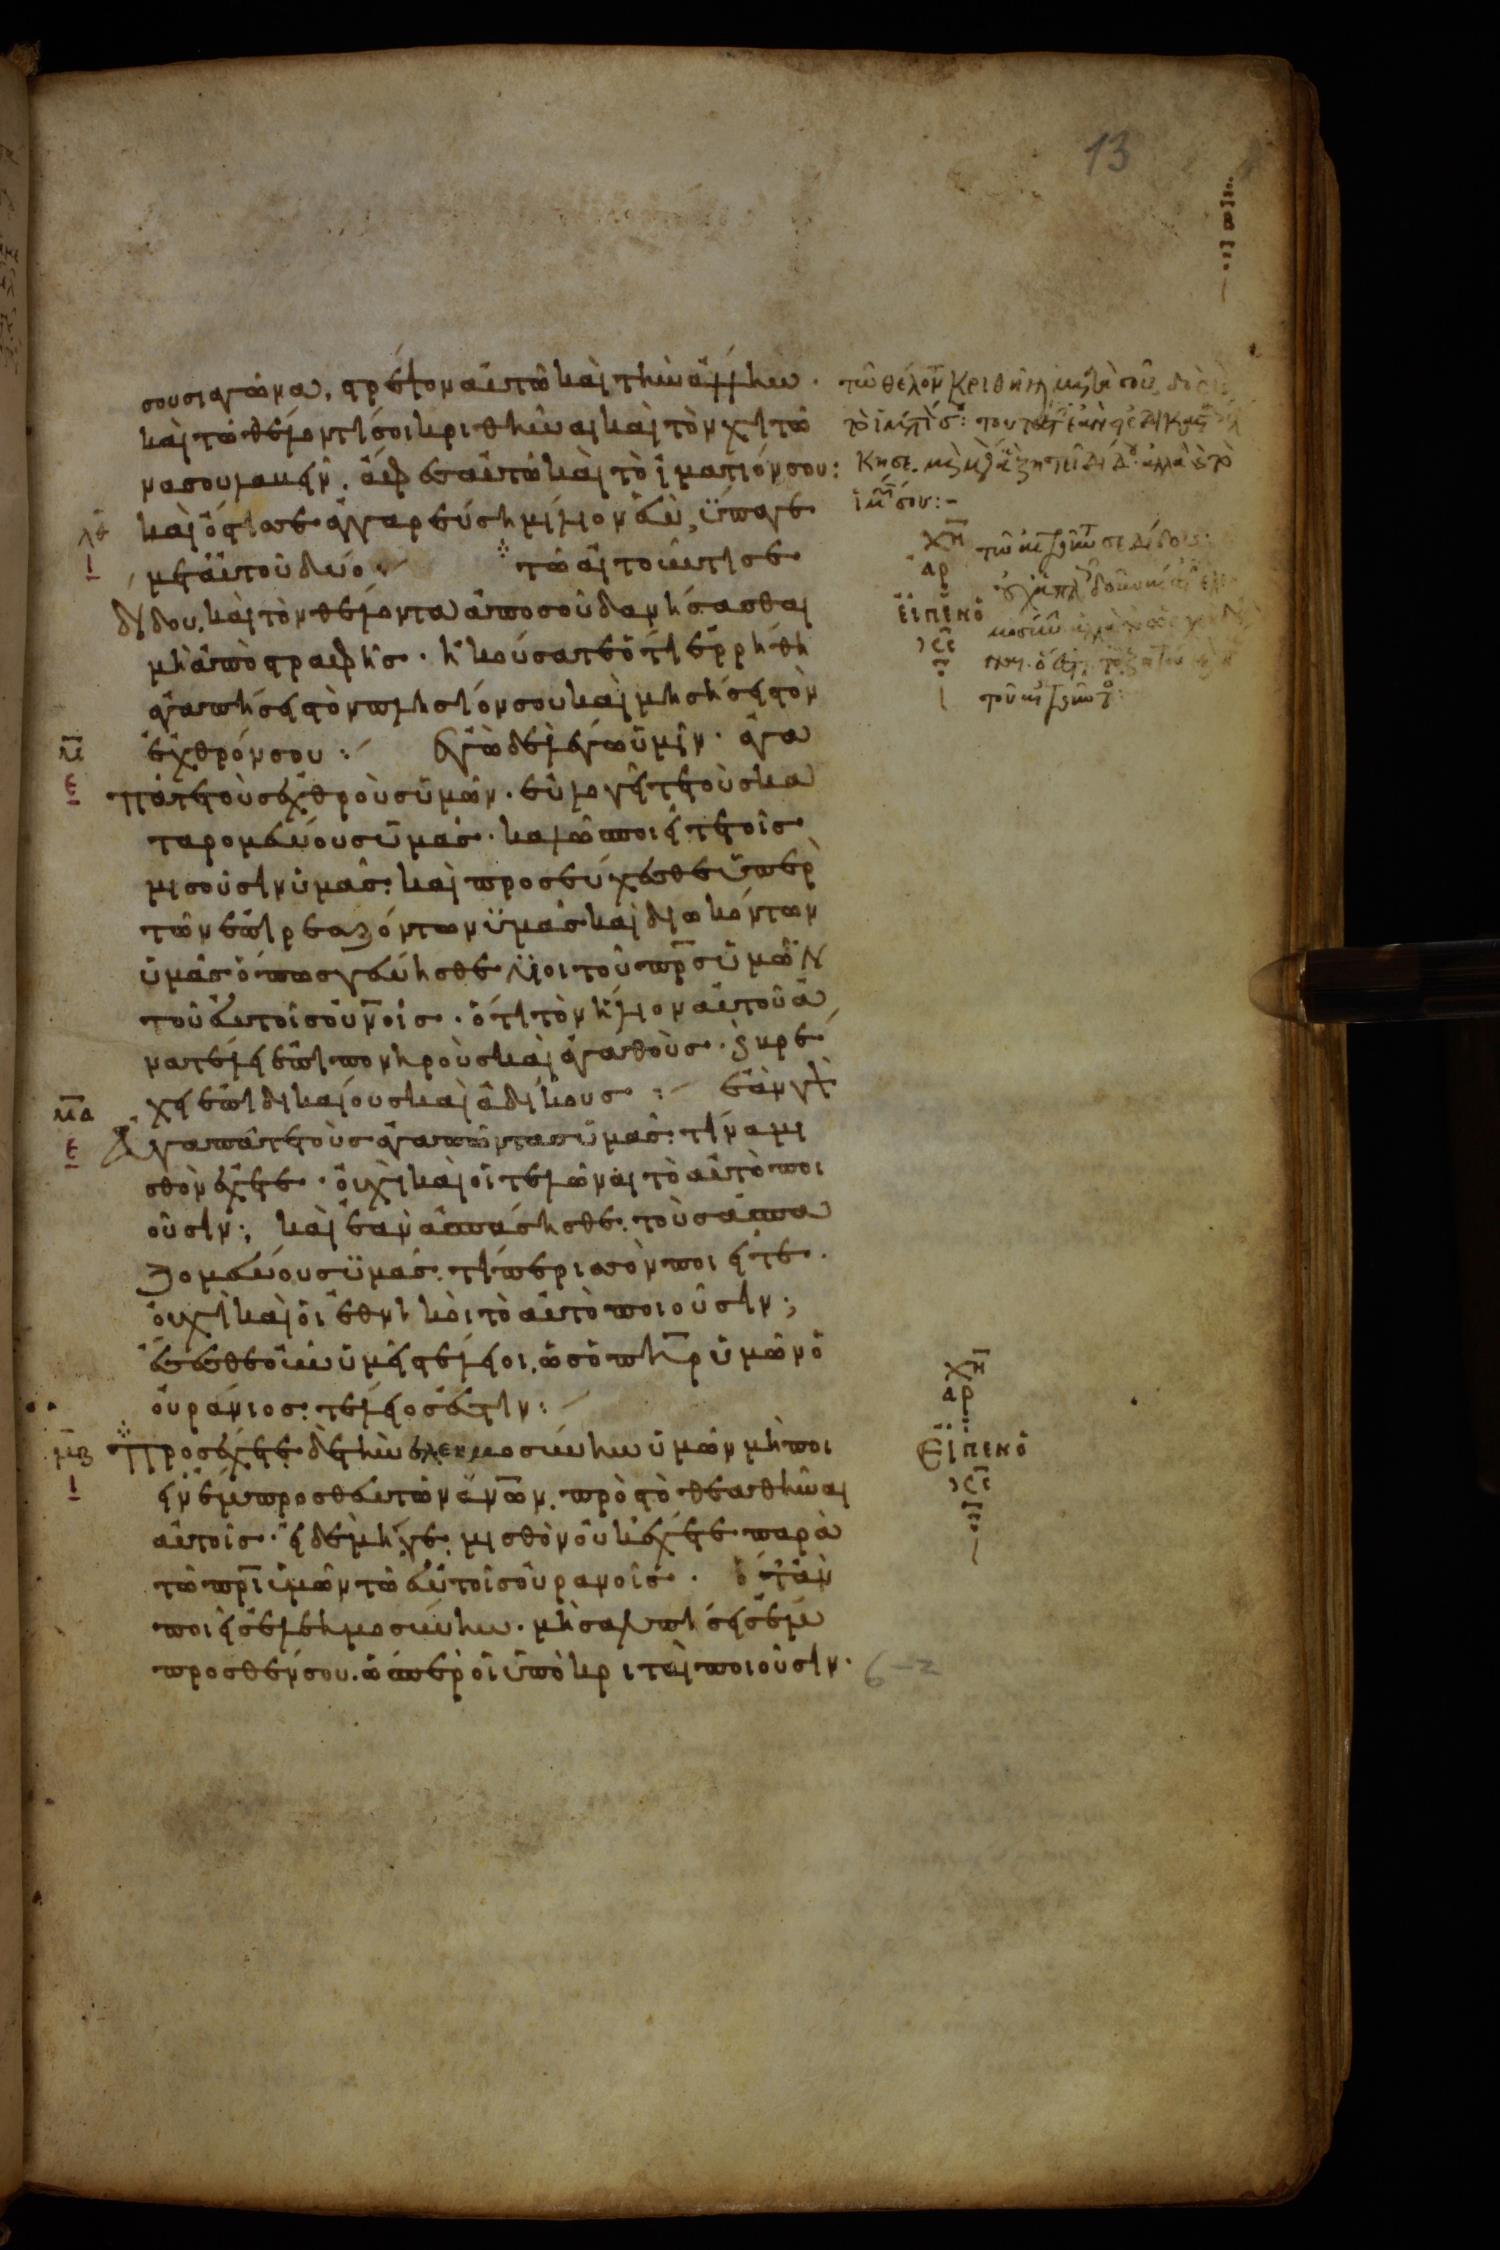 13
σου σιαγόνα, στρέψον αὐτῶ καὶ τὴν ἄλλην·
καὶ τῶ θέλοντί σοι κριθῆναι καὶ τὸν χιτῶ
να σου λαβεῖν, ἄφες αὐτῶ καὶ τὸ ἱμάτιόν σου:
λθ
καὶ ὅστις σε ἀγγαρεύσῃ μίλιον ἓν, ὕπαγε
ι
μετ αὐτοῦ δύο: τῶ αἰτοῦντί σε
δίδου, καὶ τὸν θέλοντα ἀπὸ σοῦ δανήσασθαι
μὴ ἀποστραφῆς· ἠκούσατε ὅτι ἐρρήθη
ἀγαπήσεις τὸν πλησίον σου καὶ μισήσεις τὸν
μ
ἐχθρόν σου: Ἐγὼ δὲ λέγω ὑμῖν· ἀγα
ε
πᾶτε τοὺς ἐχθροὺς ὑμῶν· εὐλογεῖτε τοὺς κα
ταρομένους ὑμᾶς· καλῶς ποιεῖτε τοῖς
μισοῦσιν ὑμᾶς· καὶ προσεύχεσθε ὑπὲρ
τῶν ἐπιρεαζόντων ὑμᾶς καὶ διωκόντων
ὑμᾶς ὅπως γένησθε υἱοὶ τοῦ πρσ ὑμῶν
τοῦ ἐν τοῖς οὐνοῖς· ὅτι τὸν ἥλιον αὐτοῦ ἀ
νατέλει ἐπὶ πονηροὺς καὶ ἀγαθοὺς· καὶ βρέ
μα
χει ἐπὶ δικαίους καὶ ἀδίκους: ἐὰν γὰρ
ε
Ἀγαπᾶτε τοὺς ἀγαπῶντας ὑμᾶς· τίνα μι
σθὸν ἔχετε· οὐχὶ καὶ οἱ τελῶναι τὸ αὐτὸ ποι
οῦσιν; καὶ ἐὰν ἀσπάσησθε τοὺς ἀσπα
ζομένους ὑμᾶς· τί περισσὸν ποιεῖτε·
οὐχὶ καὶ οἱ ἐθνικοὶ τὸ αὐτὸ ποιοῦσιν;
ἔσεσθε οὖν ὑμεῖς τέλειοι, ὡς ὁ πηρ ὑμῶν ὁ
οὐράνιος τέλειός ἐστιν:
μβ
Προσέχετε δὲ τὴν ἐλεημοσύνην ὑμῶν μὴ ποι
ι
εῖν ἔμπροσθεν τῶν ἀνων, πρὸς τὸ θεαθῆναι
αὐτοῖς· εἰ δὲ μή γε, μισθὸν οὐκ ἔχετε παρὰ
τῶ πρι ὑμῶν τῶ ἐν τοῖς οὐρανοῖς· ὅταν
ποιεῖς ἐλεημοσύνην· μὴ σαλπίσεις ἔμ
προσθέν σου, ὥσπερ οἱ ὑποκριταὶ ποιοῦσιν·
6-2
ἱμτι σου:-
αρ
εἶπεν ὁ
ισ
αρ
Εἶπεν ὁ
ισ